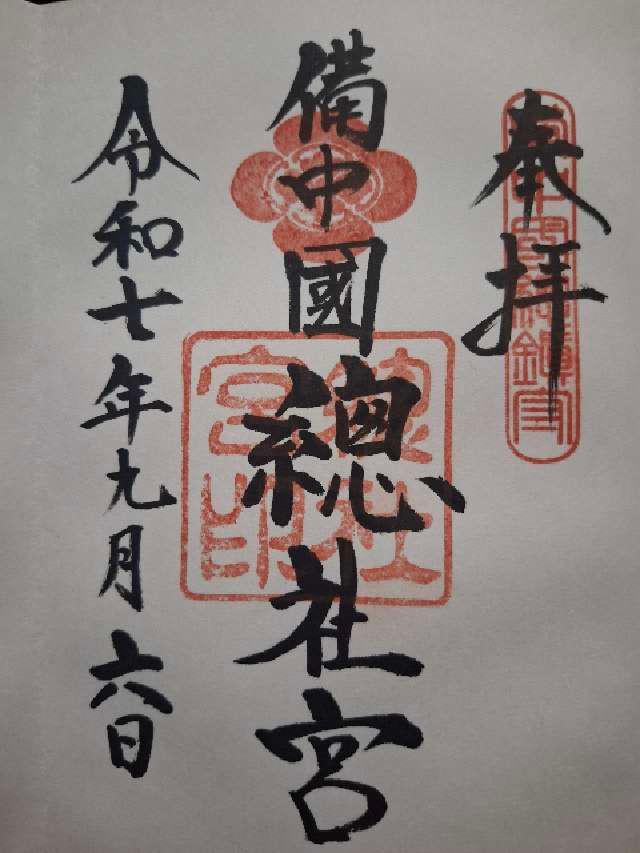 奉拝
備中國總社宮
總社
宮印
令和七年九月六日